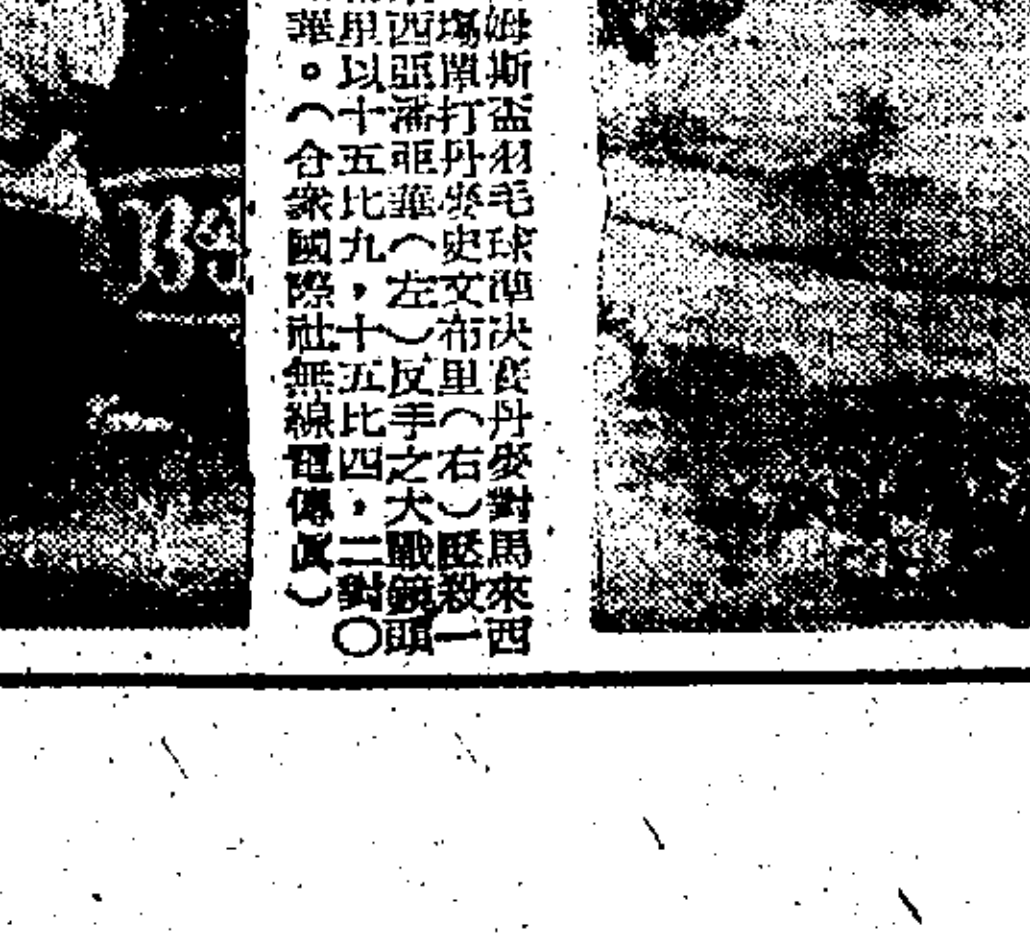 姆斯盃羽毛球準决賽丹麥對馬來西
塲單打丹麥史文布里（右）壓殺一
西亞潘亞華（左）反手之大戰鏡頭
里以十五比九，十五比四，二對〇
華。（合衆國際社無線電傳眞）